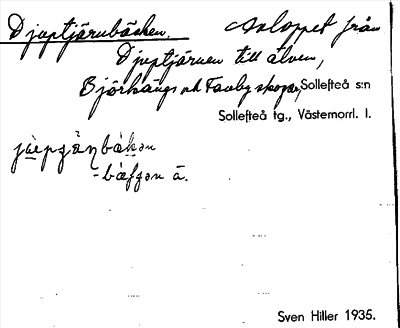 Djuptjärnbäcken. Avloppet från
Djuptjärnen till älven,
Björkängs och Fanby skogar, Sollefteå s:n
Sollefteå tg., Västernorrl. l.
Sven Hiller 1935.